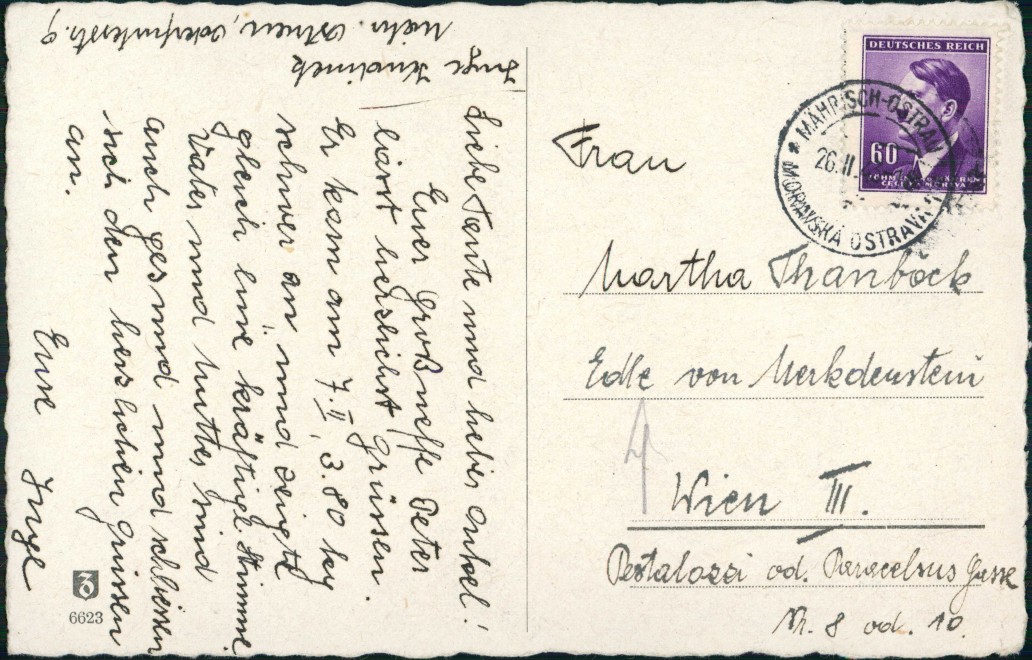 Inge
Mähr. Ostrau,
Liebe Tante und lieber Onkel!
Euer Großneffe Peter
lässt herzlichst Grüssen.
Er kam am 7. II, 3.80 kg
schwer an, und zeigte
gleich eine kräftige Stimme.
Vater und Mutter sind
auch gesund und schliessen
sich den herzlichen Grüssen
an.
Eure Inge
6623
DEUTSCHES REICH
60
BÖHMEN UND MÄHREN
ČECHY A MORAVA
MÄHRISCH-OSTRAU
26.II.
MORAVSKÁ OSTRAVA
Frau
Martha Thanböck
Edle von Merkdenstein
Wien III.
Pestalozzi od. Paracelsus Gasse
Nr. 8 od. 10.